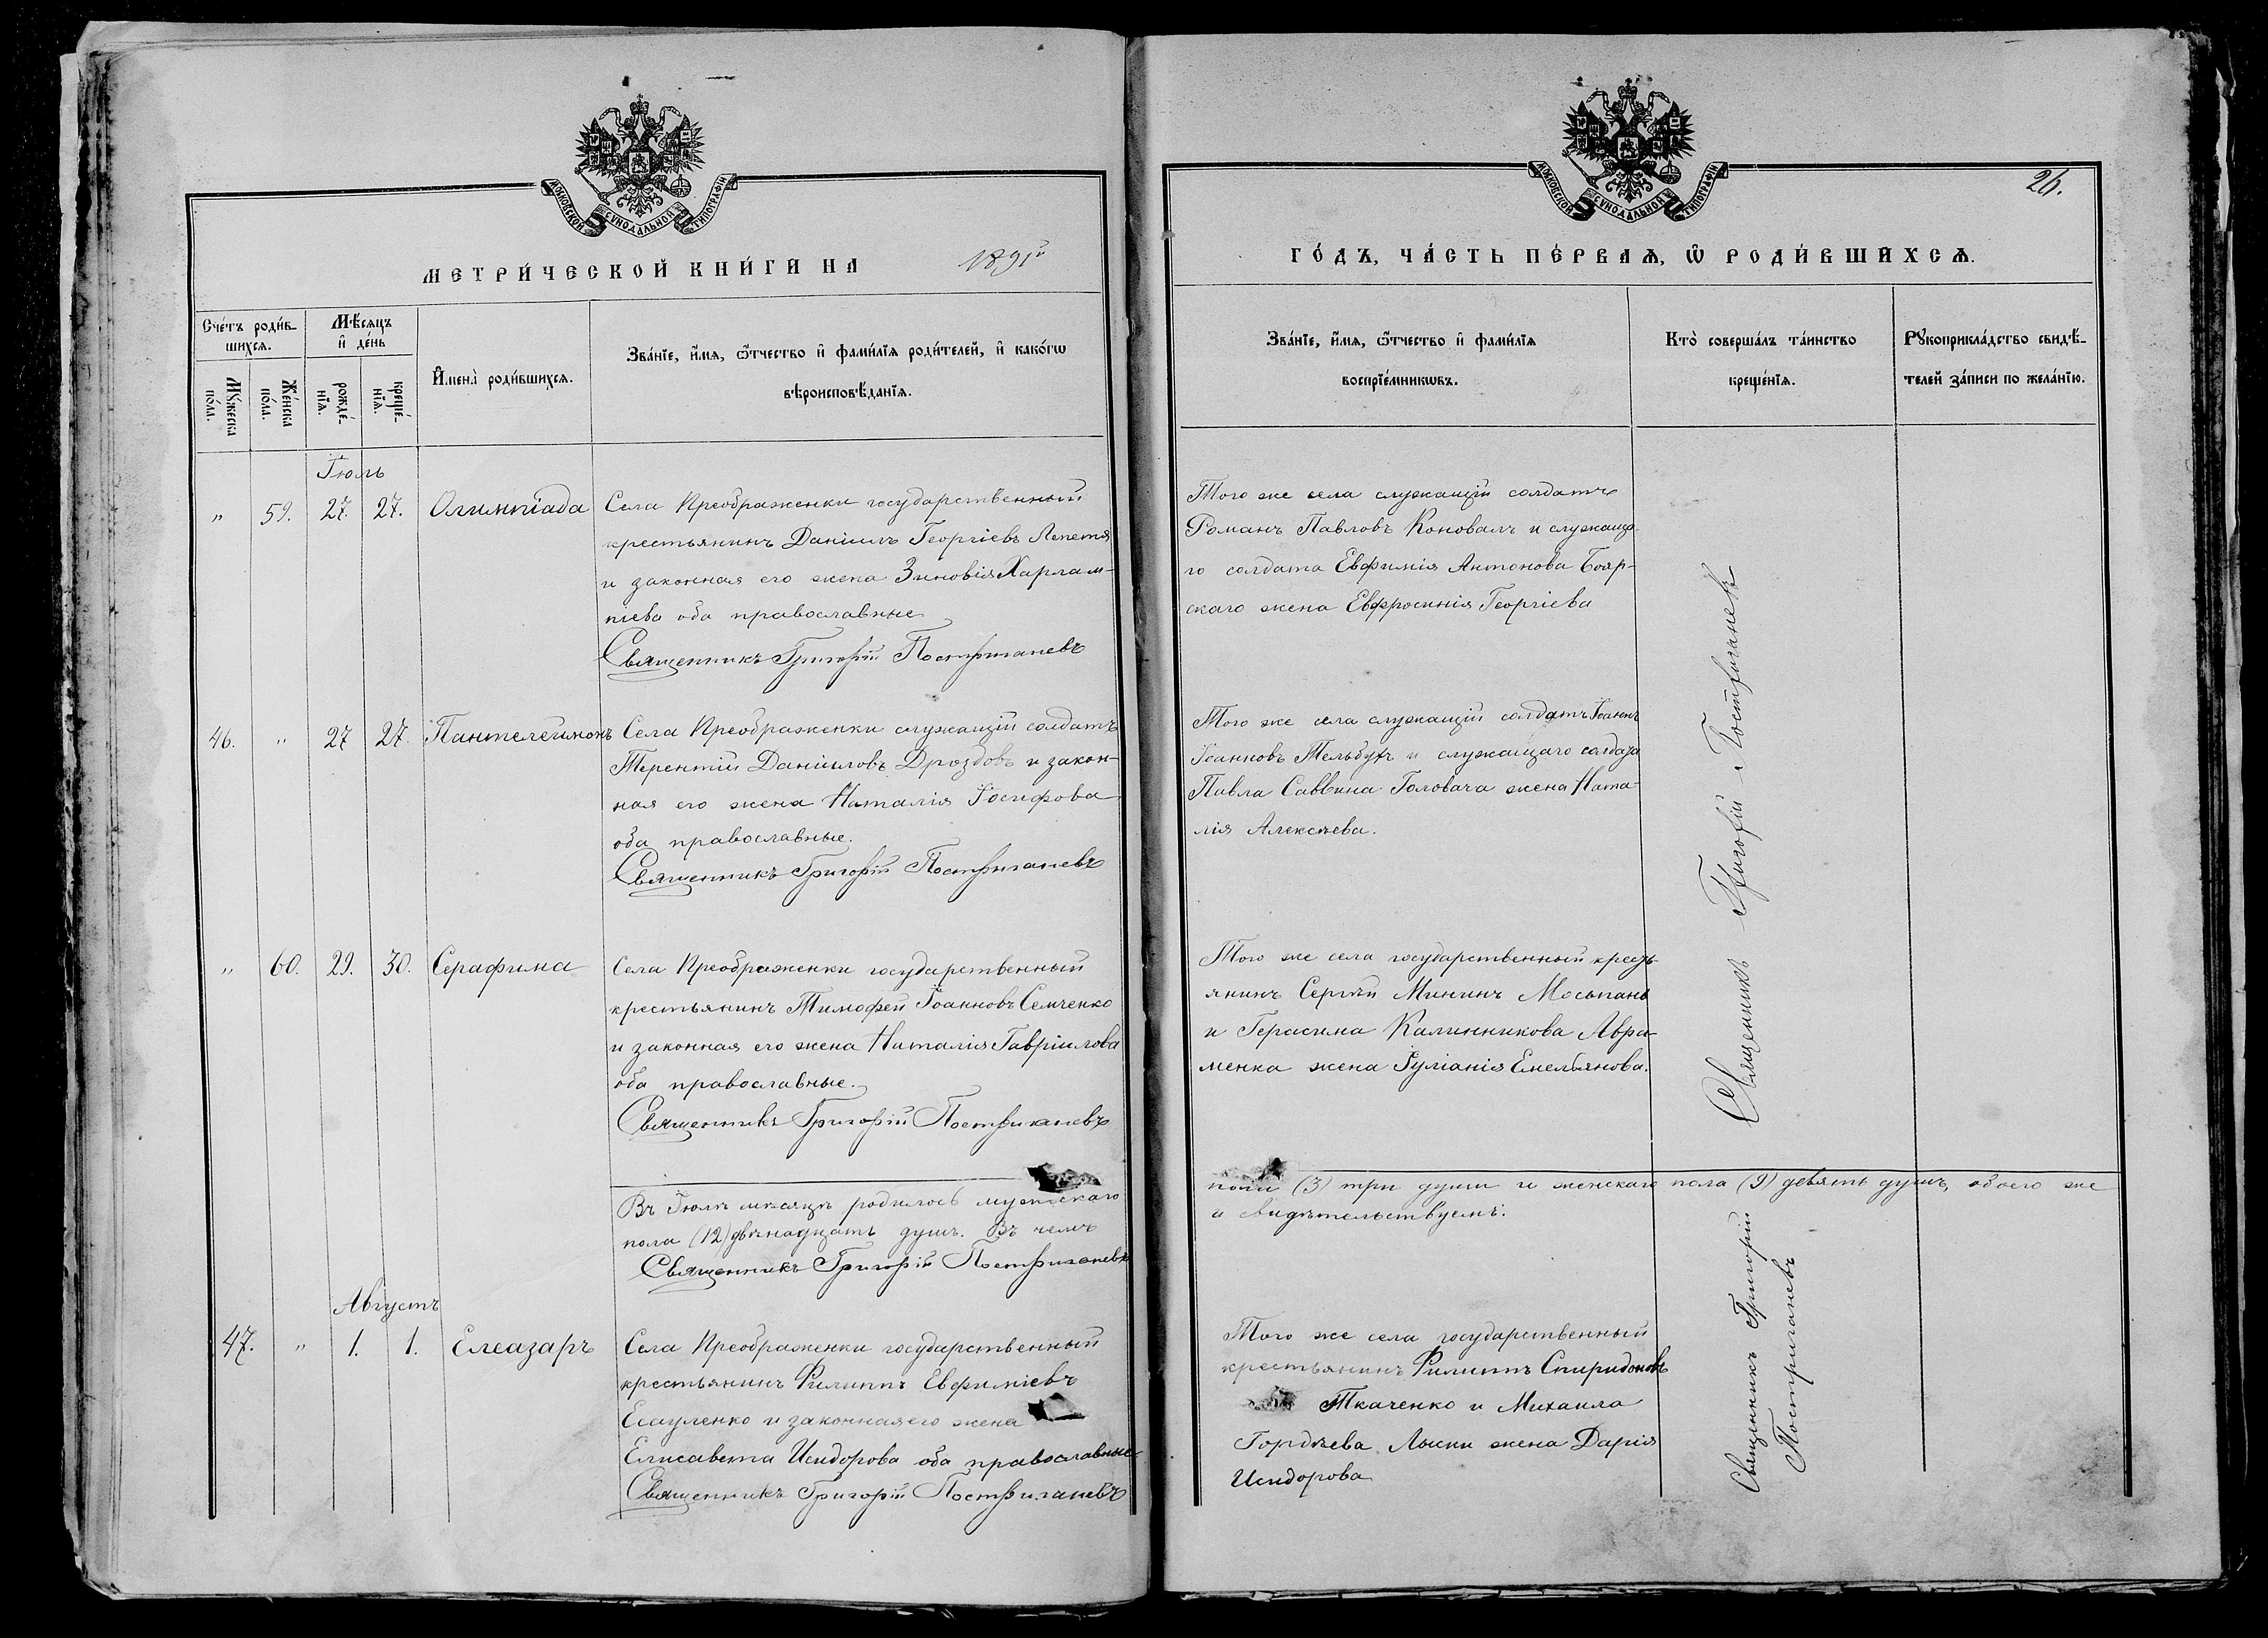 МОСКОВСКОЙ СѴНОДАЛЬНОЙ ТИПОГРАФІИ
МЕТРИ́ЧЕСКОЙ КНИ́ГИ НА 1891й
Сче́тъ роди́в-
шихсѧ.
Мѣ́сѧцъ
и҆ де́нь
Мꙋ́жеска
по́ла.
Же́нска
по́ла.
рожде́-
нїѧ.
креще́-
нїѧ.
И҆мена̀ роди́вшихсѧ.
Зва́нїе, и҆́мѧ, ѻ҆́тчество и҆ фами́лїѧ роди́телей, и҆ како́гѡ
вѣроисповѣ́данїѧ.
Іюль
" 59. 27. 27. Олимпіада
Села Преображенки государственный
крестьянинъ Даніилъ Георгіевъ Лепетя
и законная его жена Зиновія Харлам-
піева оба православные
Священникъ Григорій Постриганевъ
46. " 27 27. Пантелеимонъ
Села Преображенки служащій солдатъ
Терентій Даніиловъ Дроздовъ и закон-
ная его жена Наталія Іосифова
оба православные.
Священникъ Григорій Постриганевъ
" 60. 29. 30. Серафима
Села Преображенки государственный
крестьянинъ Тимофей Іоанновъ Семченко
и законная его жена Наталія Гавріилова
оба православные.
Священникъ Григорій Постриганевъ
Въ Іюлѣ мѣсяцѣ родилось мужескаго
пола (12) двѣнадцать душъ. Въ чемъ
Священникъ Григорій Постриганевъ
Августъ
47. " 1. 1. Елеазаръ
Села Преображенки государственный
крестьянинъ Филиппъ Евфиміевъ
Есауленко и законная его жена
Елисавета Исидорова оба православные
Священникъ Григорій Постриганевъ
МОСКОВСКОЙ СѴНОДАЛЬНОЙ ТИПОГРАФІИ
26.
ГО́ДЪ, ЧА́СТЬ ПЕ́РВАѦ, Ѡ҆ РОДИ́ВШИХСѦ.
Зва́нїе, и҆́мѧ, ѻ҆́тчество и҆ фами́лїѧ
воспрїе́мникѡвъ.
Кто̀ соверша́лъ та́инство
креще́нїѧ.
Рꙋкоприкла́дство свидѣ́-
телей за́писи по жела́нїю.
Того же села служащій солдатъ
Романъ Павловъ Коновалъ и служаща-
го солдата Евфимія Антонова Бояр-
скаго жена Евфросинія Георгіева
Того же села служащій солдатъ Іоаннъ
Іоанновъ и служащаго солдата
Павла Саввина Головача жена Ната-
лія Алексѣева.
Того же села государственный кресть-
янинъ Сергѣй Мининъ Мосьпанъ
и Герасима Калинникова Авра-
менка жена Іуліанія Емельянова.
Священникъ Григорій Постриганевъ
пола (3) три души и женскаго пола (9) девять душъ, обоего же
и свидѣтельствуемъ.
Того же села государственный
крестьянинъ Филиппъ Спиридоновъ
Ткаченко и Михаила
Гордѣева Лыски жена Дарія
Исидорова
Священникъ Григорій
Постриганевъ